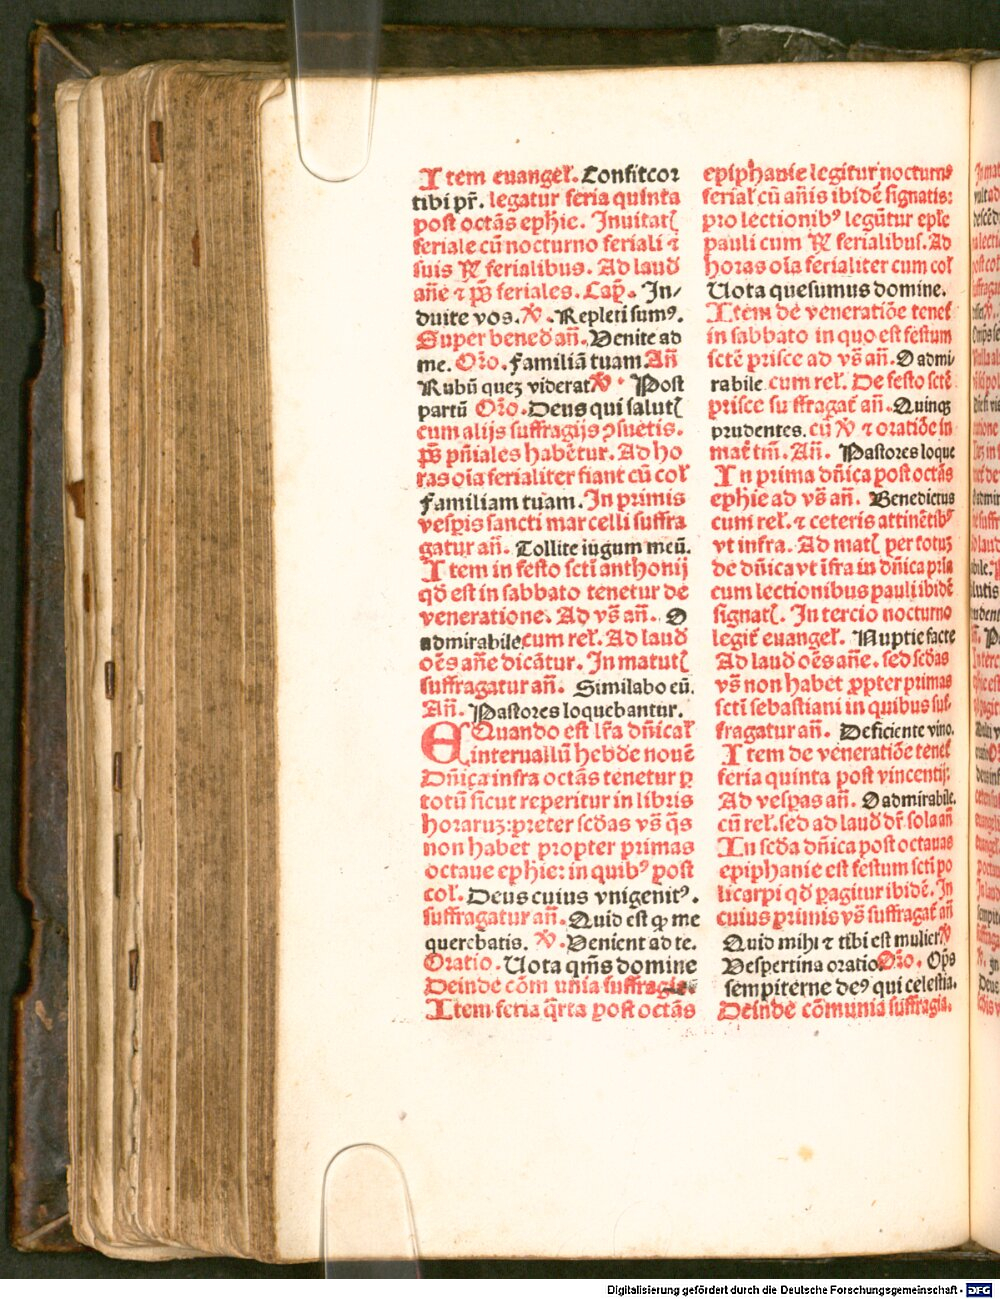 Item euangeł. Confiteor
tibi pr̄. legatur feria quinta
post octãs ephie. Inuitatꝭ
feriale cũ nocturno feriali ⁊
suis ℟ ferialibus. Ad laud̛
añe ⁊ p̄s feriales. Cap̃. In⸗
duite vos. ℣. Repleti sumꝰ.
Super bened̛ añ. Venite ad
me. Oŕo. Familiã tuam Añ
Rubũ quez viderat ℣. Post
partũ Oŕo. Deus qui salutꝭ
cum alijs suffragijs ↄsuetis.
p̄s pñiales habẽtur. Ad ho
ras oĩa ferialiter fiant cũ coł
Familiam tuam. In primis
vesp̱is sancti marcelli suffra
gatur añ. Tollite iugum meũ.
Item in festo sctĩ anthonij
qđ est in sabbato tenetur de
veneratione. Ad vs̃ añ. O
admirabile cum reł. Ad laud̛
oẽs añe dicãtur. In matutꝭ
suffragatur añ. Similabo eũ.
Añ. Pastores loquebantur.
Quando est lr̃a dñicał
interuallũ hebde nouẽ
Dñica infra octãs tenetur ꝑ
totũ sicut reperitur in libris
horaruz: preter scđas vs̃ q̃s
non habet propter primas
octaue ephie: in quibꝰ post
coł. Deus cuius vnigenitꝰ.
suffragatur añ. Quid est ꝙ me
querebatis. ℣. Venient ad te.
Oratio. Uota qm̃s domine
Deinde cõm unia suffragia
Item feria q̃rta post octãs
epiphanie legitur nocturnꝰ
feriał cũ añis ibidẽ signatis:
pro lectionibꝰ legũtur eple
pauli cum ℟ ferialibus. Ad
horas oĩa ferialiter cum coł
Uota quesumus domine.
Item de veneratiõe tenet̃
in sabbato in quo est festum
sctẽ prisce ad vs̃ añ. O admi⸗
rabile cum reł. De festo sctẽ
prisce suffragat̃ añ. Quinqꝫ
prudentes. cũ ℣ ⁊ oratiõe in
mat̃ tm̃. Añ. Pastores loque
In prima dñica post octãs
ephie ad vs̃ añ. Benedictus
cum reł. ⁊ ceteris attinẽtibꝰ
vt infra. Ad matꝭ per totuz
de dñica vt ĩfra in dñica pria
cum lectionibus pauli ibidẽ
signatꝭ. In tercio nocturno
legit̃ euangeł. Nuptie facte
Ad laud̛ oẽs añe. sed scđas
vs̃ non habet ꝓpter primas
sctĩ sebastiani in quibus suf⸗
fragatur añ. Deficiente vino.
Item de veneratiõe tenet̃
feria quinta post vincentij:
Ad vesp̱as añ. O admirabile.
cũ reł. sed ad laud̛ dr̃ sola añ
In scđa dñica post octauas
epiphanie est festum sctĩ po
licarpi qđ ꝑagitur ibidẽ. In
cuius primis vs̃ suffragat̃ añ
Quid mihi ⁊ tibi est mulier ℣
Vespertina oratio. Oŕo. Op̃s
sempiterne deꝰ qui celestia.
Deinde cõmunia suffragia.
Digitalisierung gefördert durch die Deutsche Forschungsgemeinschaft - DFG